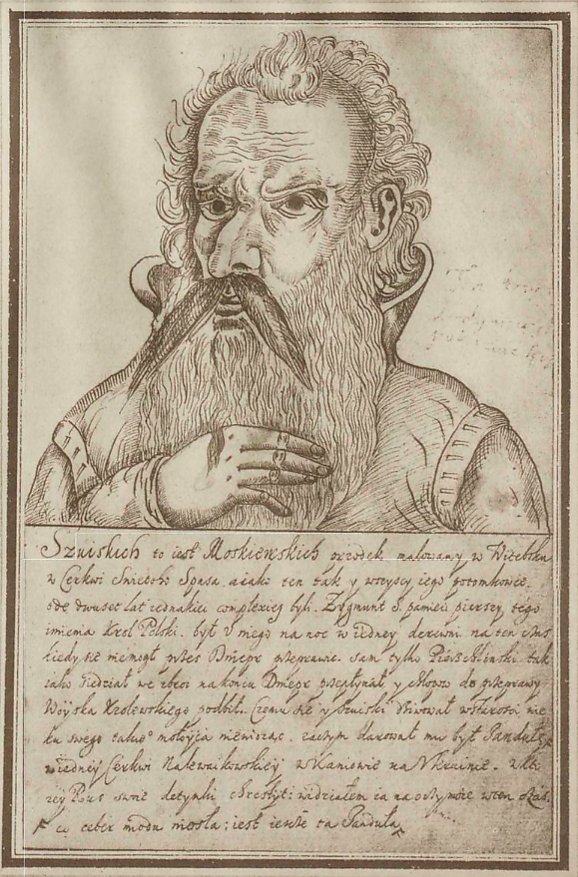 Szuiskich to iest Moskiewskich przodek malowany w Witebsku
w Cerkwi Swietego Spasa. a iako ten tak y wszyscy iego potomkowie
dwuset lat iednakiei complexiey byli. Zygmunt S. pamieci pierszy tego
imienia Krol Polski. był u niego na noc w iedney derewni. na ten czas
kiedy sie niemogł przez Dniepr przeprawic. sam tylko tak
iako siedział we zbroi na koniu Dniepr przepłynał, y do przeprawy
Woyska Krolewskiego podbił. Czemu sie y Szuiski dziwował w starosci
ku swego takie° mołoyca niewidzac. zaczym darował mu był Pandułę,
w iedney Cerkwi Nalewaikowskiey w Kaniowie na Ukrainie. w kto
rey Rus swoie detynki chrescyt: widziałem ia na oczy moie w ten czas.
ceber miodu niosła; iest ieszcze ta Panduła